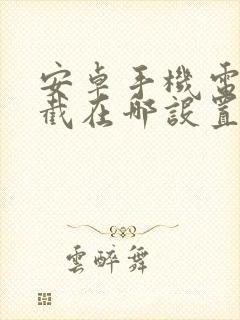 安卓手機電
截在哪設置
雲醉舞